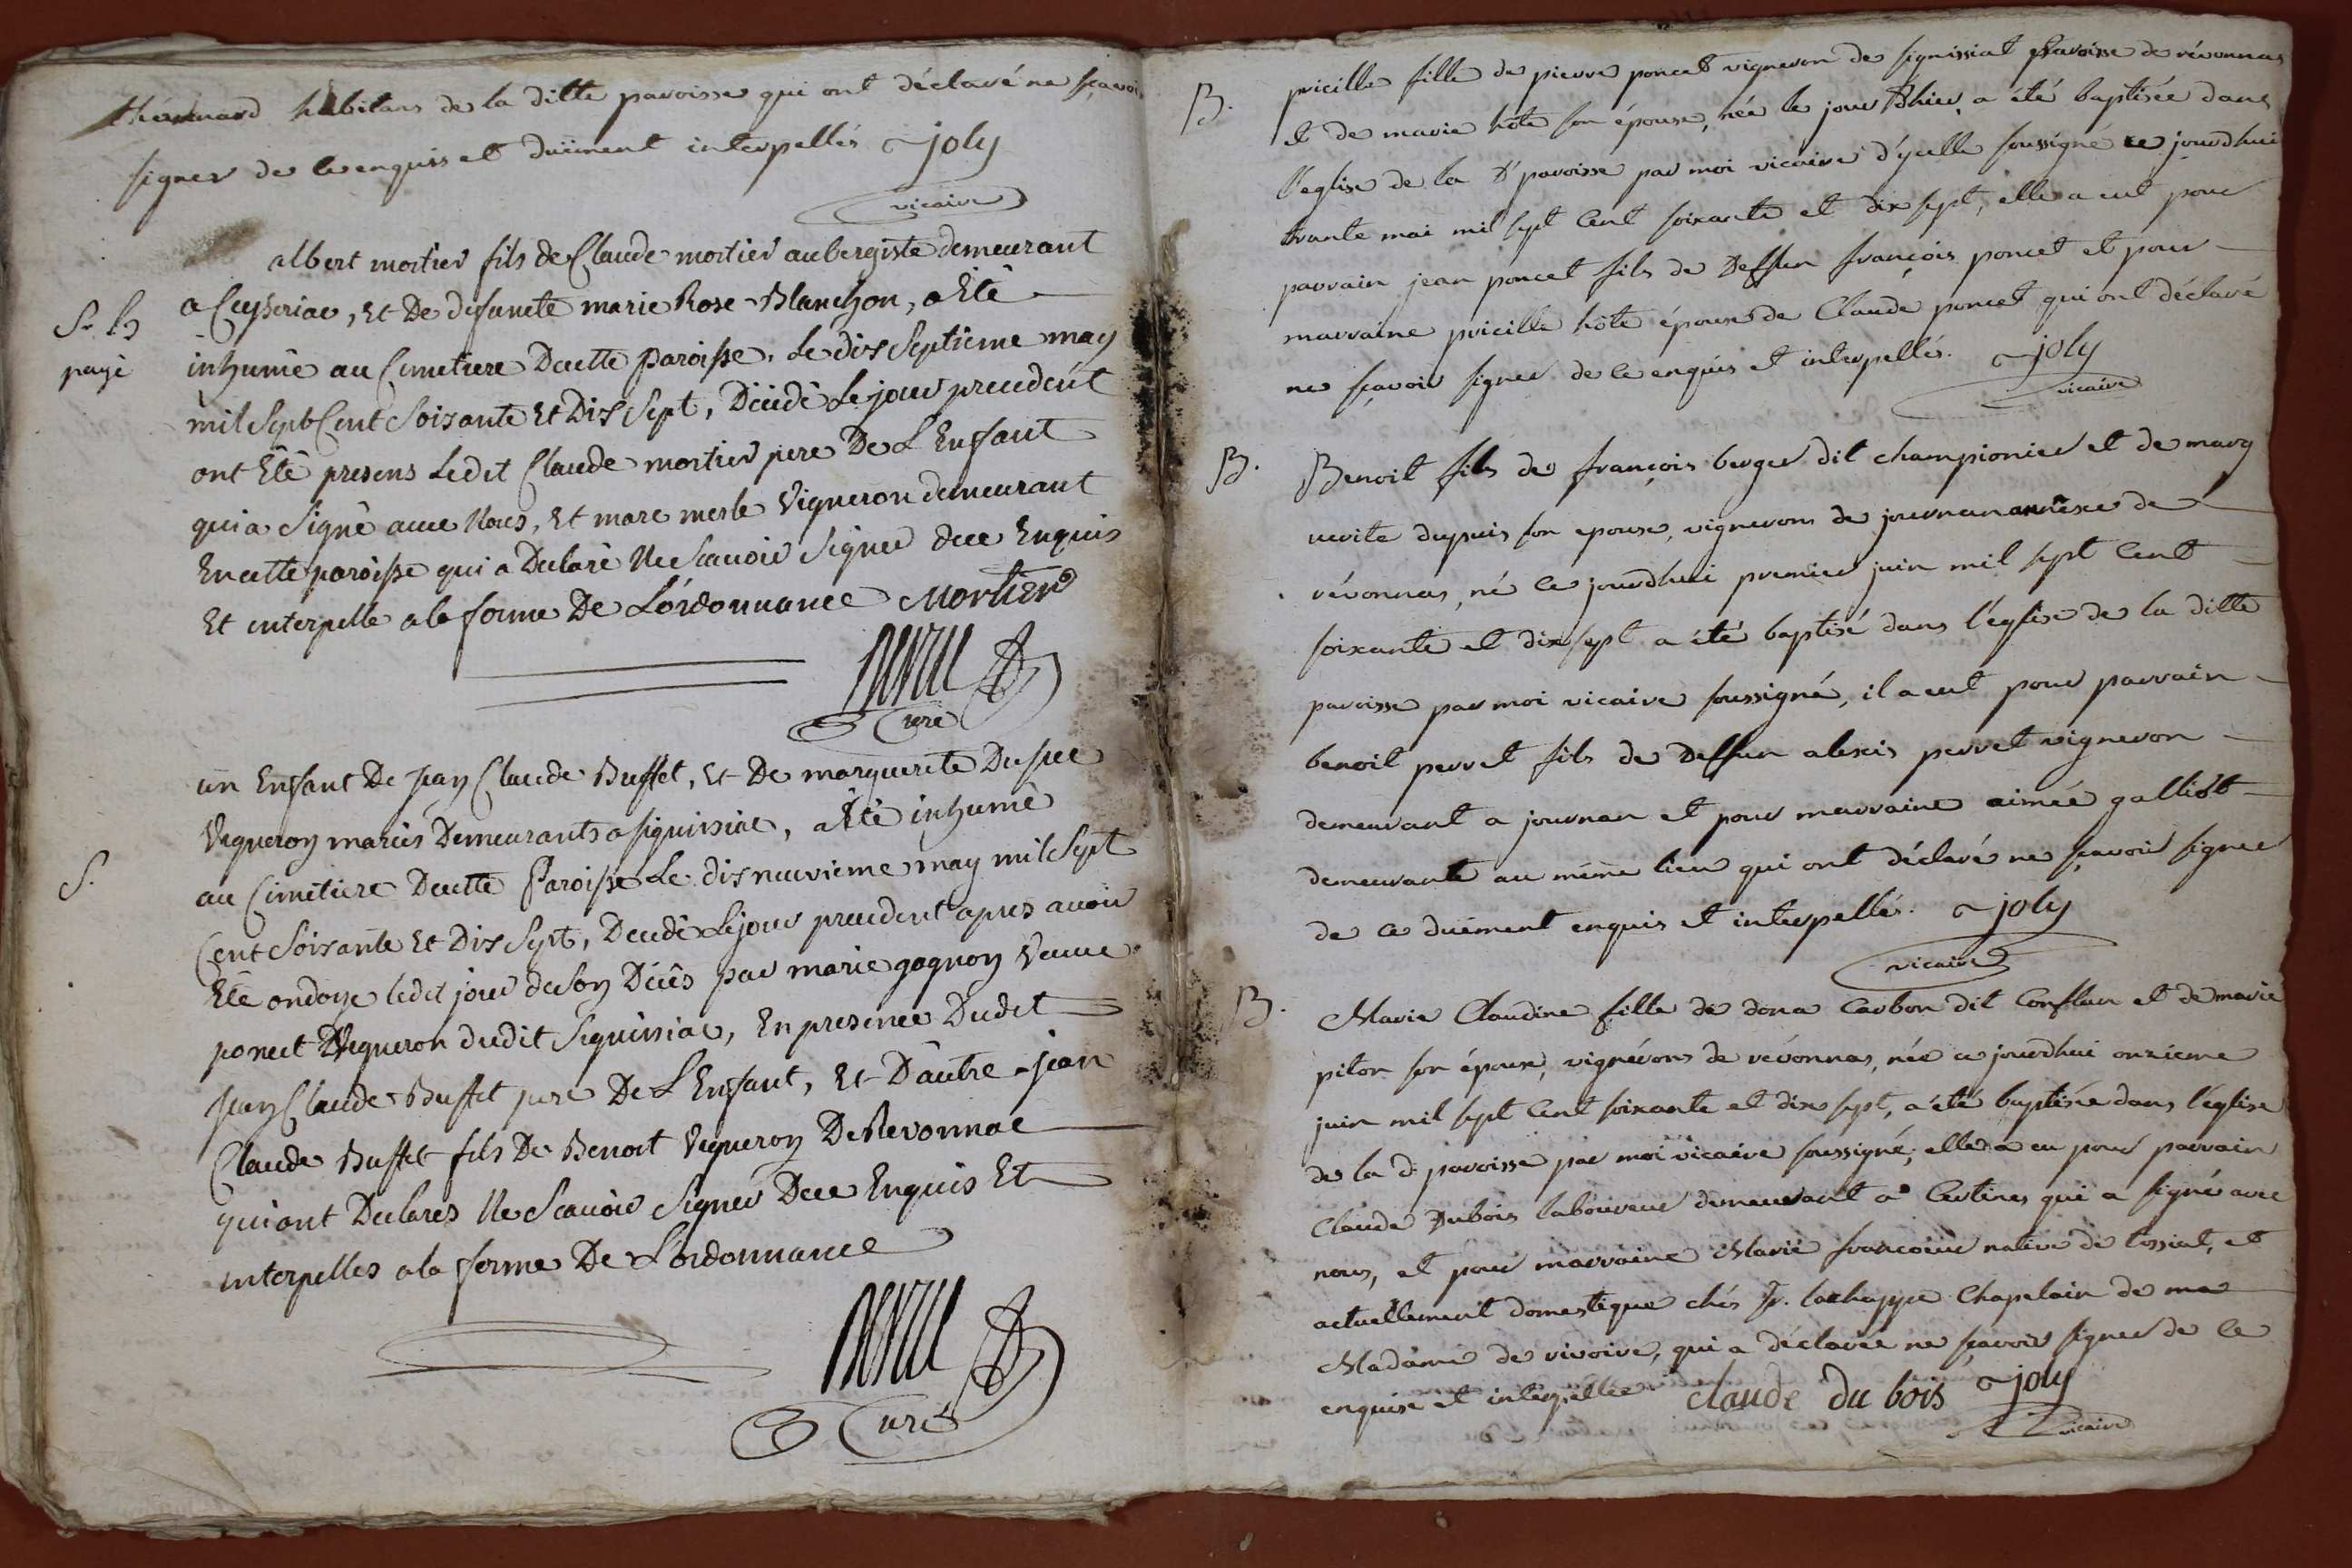 habitans de la ditte paroisse qui ont déclaré ne sçavoir
signer de ce enquis et duëment interpellés joly
vicaire
albert mortier fils de Claude mortier aubergiste demeurant
a Ceyseriac, Et De defuncte marie Rose Blanchon, a Eté
S. 
payé
inhumé au Cimetiere Dcette paroisse, Le dix septieme may
mil Sept Cent Soixante Et Dix Sept, Décédé Le jour precedent
ont Eté presens Ledit Claude mortier pere De L'Enfant
qui a Signé avec Nous, Et marc merle Vigneron demeurant
En cette paroisse qui a Declaré Ne Scavoir Signer dece Enquis
Et interpellé a la forme De L'ordonnance Mortier
Curé
un Enfant De Jean Claude Buffet, Et De marguerite Dupuc
Vigneron mariés Demeurants a Siguissiac, a Eté inhumé
S.
au Cimetiere Dcette Paroisse Le dix neuvieme may mil Sept
Cent Soixante Et Dix Sept, Decedé Le jour precedent apres avoir
Eté ondoyé ledit jour de son Décès par marie gagnon Veuve
poncet Vigneron dudit Siguissiac, En presence Dudit
Jean Claude Buffet pere De L'Enfant, Et D'autre jean
Claude Buffet fils De Benoit Vigneron De Revonnac
qui ont Declarés Ne Scavoir Signer Dece Enquis Et
interpelles a la forme De L'ordonnance
Curé
B. pricille fille de pierre poncet vigneron de signissiat paroisse de révonnas
et de marie hôte son épouse, née le jour d'hier, a été baptisée dans
l'eglise de la dt paroisse par moi vicaire d'ycelle soussigné ce jourdhui
trante mai mil sept cent soixante et dix sept, elle a eut pour
parrain jean poncet fils de deffun françois poncet et pour
marraine pricille hôte épouse de Claude poncet qui ont déclaré
ne sçavoir signer de ce enquis et interpellés. joly
vicaire
B. Benoit fils de françois berger dit championier et de marg
uerite dupuis son epouse, vignerons de journan annêxe de
révonnas, né ce jourdhui premier juin mil sept cent
soixante et dix sept a été baptisé dans l'église de la ditte
paroisse par moi vicaire soussigné, il a eut pour parrain
benoit perret fils de deffun alexis perret vigneron
demeurant a journan et pour marraine aimée galliot
demeurante au même lieu qui ont déclaré ne sçavoir signer
de ce duëment enquis et interpellés. joly
vicaire
B. Marie Claudine fille de dona Carbon dit Conflan et de marie
piton son épouse, vignérons de révonnas, née ce jourdhui onzieme
juin mil sept cent soixante et dix sept, a été baptisée dans l'église
de la d. paroisse par moi vicaire soussigné; elle a eu pour parrain
Claude Dubois laboureur demeurant a Certines qui a signé avec
nous, et pour marraine Marie françoise native de tossiat, et
actuellement domestique chés Chapelain de
Madame de rivoire, qui a déclarée ne sçavoir signer de ce
enquise et interpellée claude du bois joly
vicaire